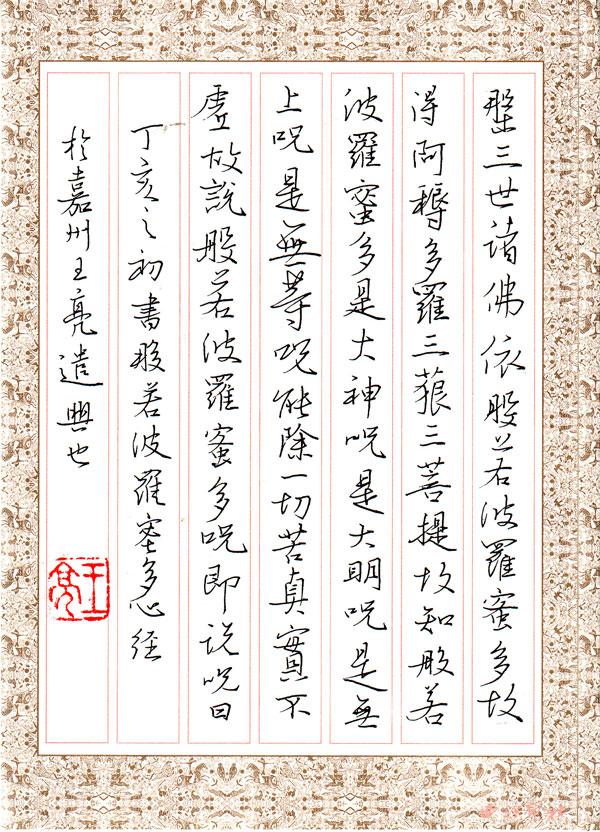 槃三世諸佛依般若波羅蜜多故
得阿耨多羅三藐三菩提故知般若
波羅蜜多是大神咒是大明咒是無
上咒是無等咒能除一切苦真實不
虛故說般若波羅蜜多咒即说咒曰
丁亥之初書般若波羅蜜多心经
於嘉州王亮遣興也
王亮